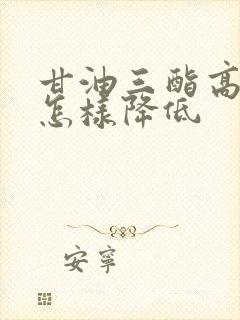 甘油三酯高
怎樣降低
安寧